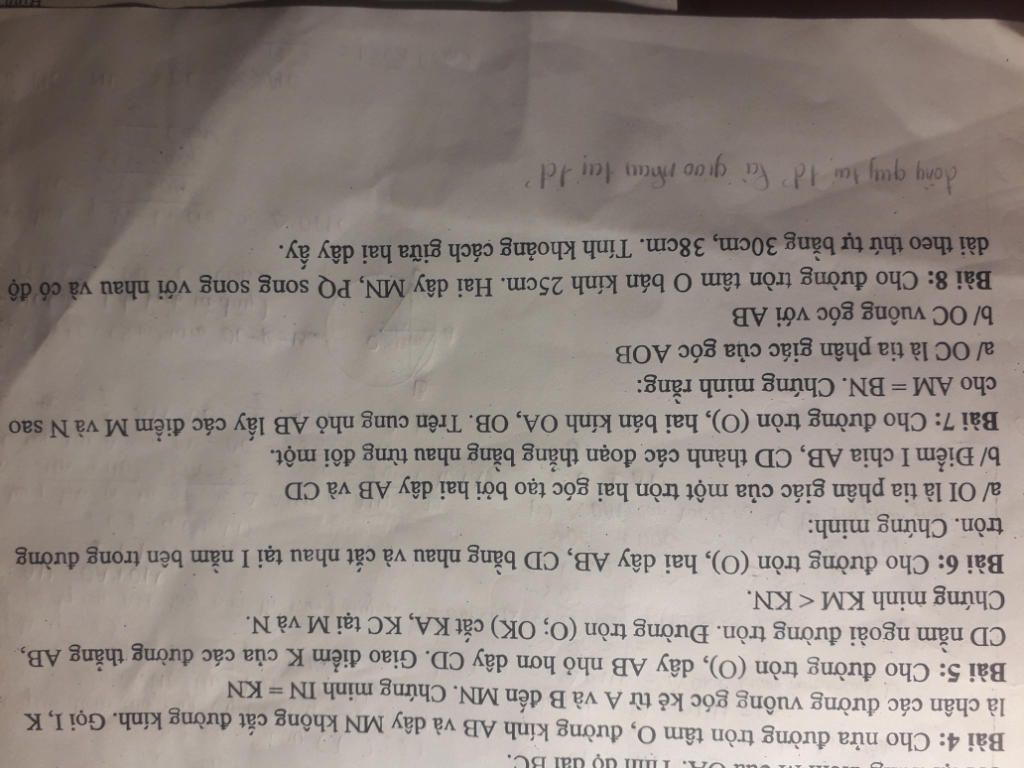 OA. Tính độ dài BC.
Bài 4: Cho nửa đường tròn tâm O, đường kính AB và dây MN không cắt đường kính. Gọi I, K
là chân các đường vuông góc kẻ từ A và B đến MN. Chứng minh IN = KN
Bài 5: Cho đương tròn (O), dây AB nhỏ hơn dây CD. Giao điểm K của các đường thẳng AB,
CD nằm ngoài đường tròn. Đường tròn (O; OK) cắt KA, KC tại M và N.
Chứng minh KM < KN.
Bài 6: Cho đường tròn (O), hai dây AB, CD bằng nhau và cắt nhau tại I nằm bên trong đường
tròn. Chứng minh:
a/ OI là tia phân giác của một tròn hai góc tạo bởi hai dây AB và CD
b/ Điểm I chia AB, CD thành các đoạn thẳng bằng nhau từng đôi một.
Bài 7: Cho đường tròn (O), hai bán kính OA, OB. Trên cung nhỏ AB lấy các điểm M và N sao
cho AM = BN. Chứng minh rằng:
a/ OC là tia phân giác của góc AOB
b/ OC vuông góc với AB
Bài 8: Cho đường tròn tâm O bán kính 25cm. Hai dây MN, PQ song song với nhau và có độ
dài theo thứ tự bằng 30cm, 38cm. Tính khoảng cách giữa hai dây ấy.
đồng quy tại 1đ' là giao nhau tại 1đ'